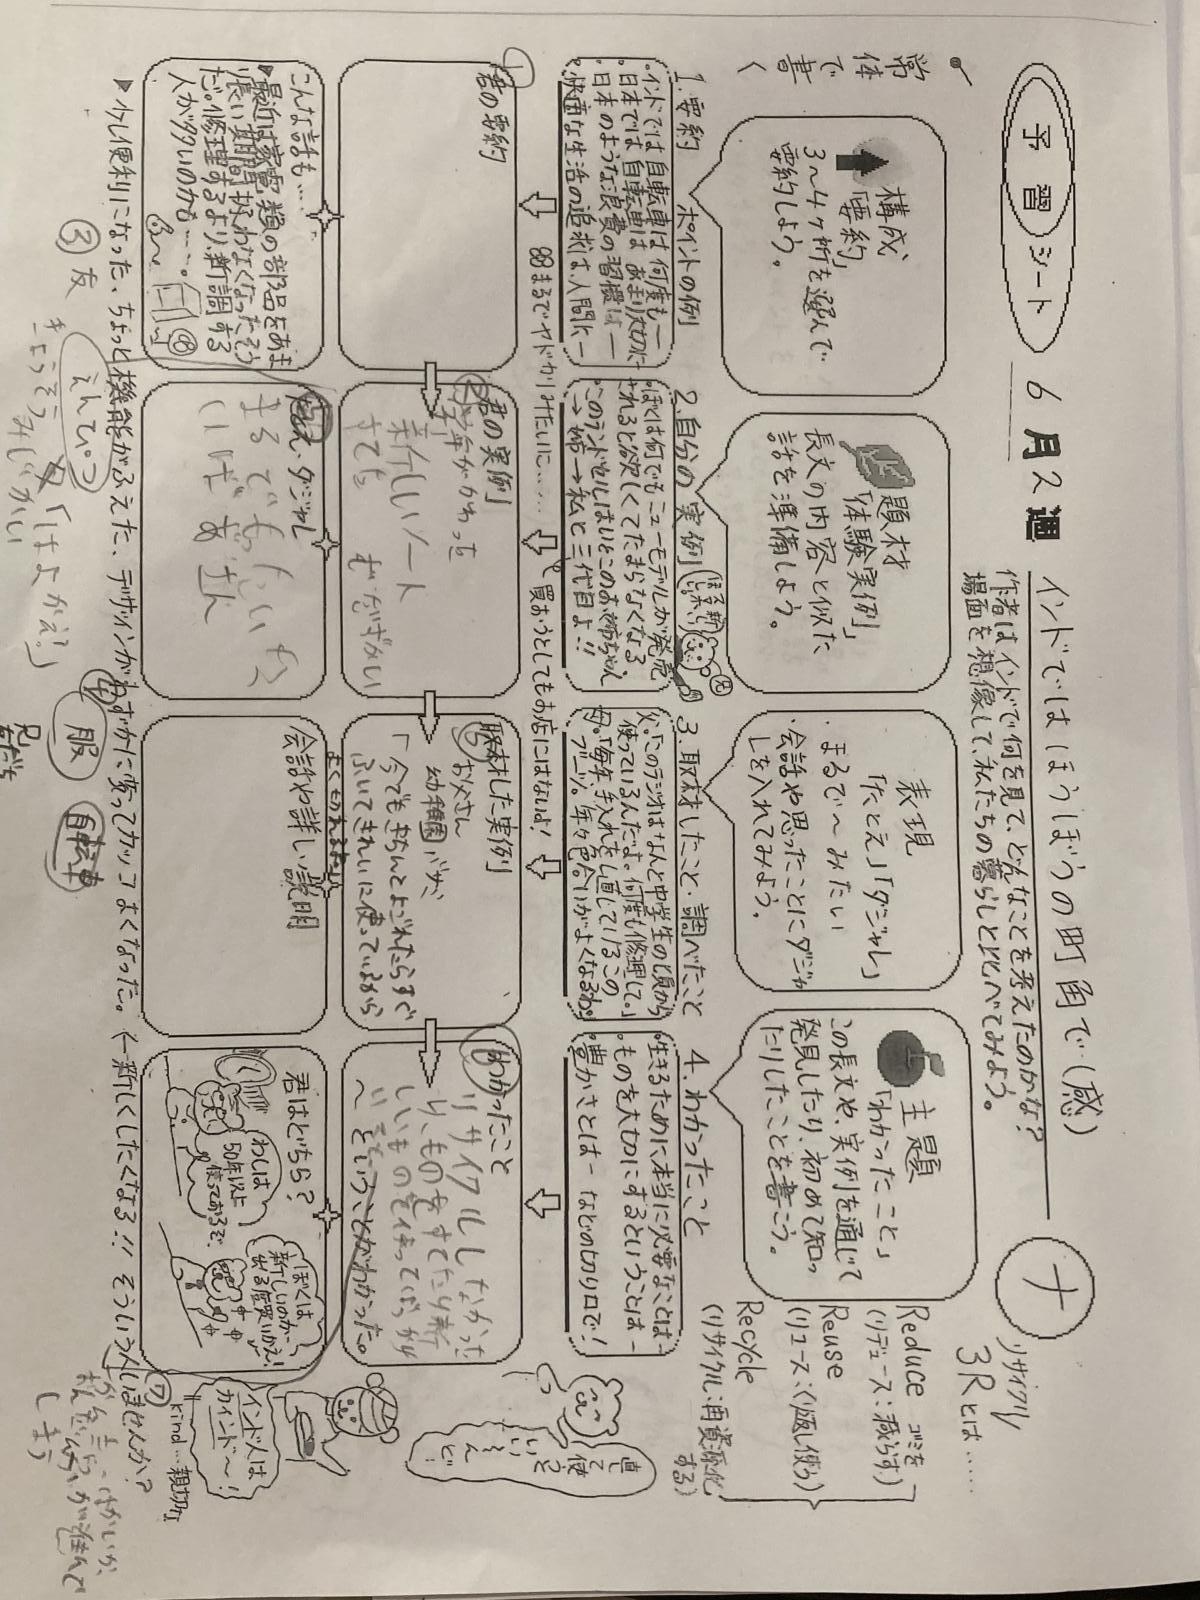 予習シート
6月2週
インドではほうぼうの町角で(感)
ナ
作者はインドで何を見て、どんなことを考えたのかな?
場面を想像して、私たちの暮らしと比べてみよう。
常体で書く
構成
「要約」
3〜4ヶ所を選んで
要約しよう。
題材
「体験実例」
長文の内容と似た
話を準備しよう。
表現
「たとえ」「ダジャレ」
まるで〜みたい
・会話や思ったことにダジャ
レを入れてみよう。
主題
「わかったこと」
この長文や、実例を通じて
発見したり、初めて知っ
たりしたことを書こう。
リサイクル
3Rとは……
Reduce ゴミを
(リデュース:減らす)
Reuse
(リユース:くり返し使う)
Recycle
(リサイクル:再資源化
する)
1.要約 ポイントの例
・インドでは自転車は何度も―
・日本では自転車はあまり大切に―
・日本のような浪費の習慣は―
・快適な生活の追求は、人間に―
2.自分の実例
・ぼくは何でもニューモデルが発売
されると欲しくてたまらなくなる
・このランドセルはいとこのお姉ちゃん
→姉→私と三代目よ!!
3.取材したこと・調べたこと
父:「このラジオはなんと中学生の頃から
使っているんだよ。何度も修理して。」
母:「毎年、手入れをし直しているこの
ブーツ。年々色合いがよくなるわ。」
4.わかったこと
・生きるために本当に必要なことは―
・ものを大切にするということは―
・豊かさとは―などの切り口で!
88まるでヤドカリみたいに……
買おうとしてもお店にはないよ!
直して使うといいんど!
①
君の要約
②
君の実例
学年がかわった
新しいノート
さても
むだづかい
⑤
取材した実例
お父さん
幼稚園 ハサミ
「今でもきちんとよごれたらすぐ
ふいてきれいに使っているから
よくきれるな」
⑥
わかったこと
リサイクルしなかった
り、ものをすてたり、新
しいものを使ってばかり
〜ということがわかった。
こんな話も…
▼最近は家電類の部品をあま
り長い期間扱わなくなったそう
だ。修理するより、新調する
人が多いのかも…。
たとえ・ダジャレ
まるでもったいない
会話や詳しい説明
君はどちら?
わしは
50年以上
使っておるぞ。
ぼくは
新しいのが
出る度買いかえ!
⑦
インド人は
カインド〜!
kind…親切な
▼少し便利になった、ちょっと機能がふえた、デザインがわずかに変ってカッコよくなった。(←新しくしたくなる!! そういう人いませんか?
③友
えんぴつ
きょうそう
みじかい
「はよかえ?」
④
服
自転車
兄
友だち